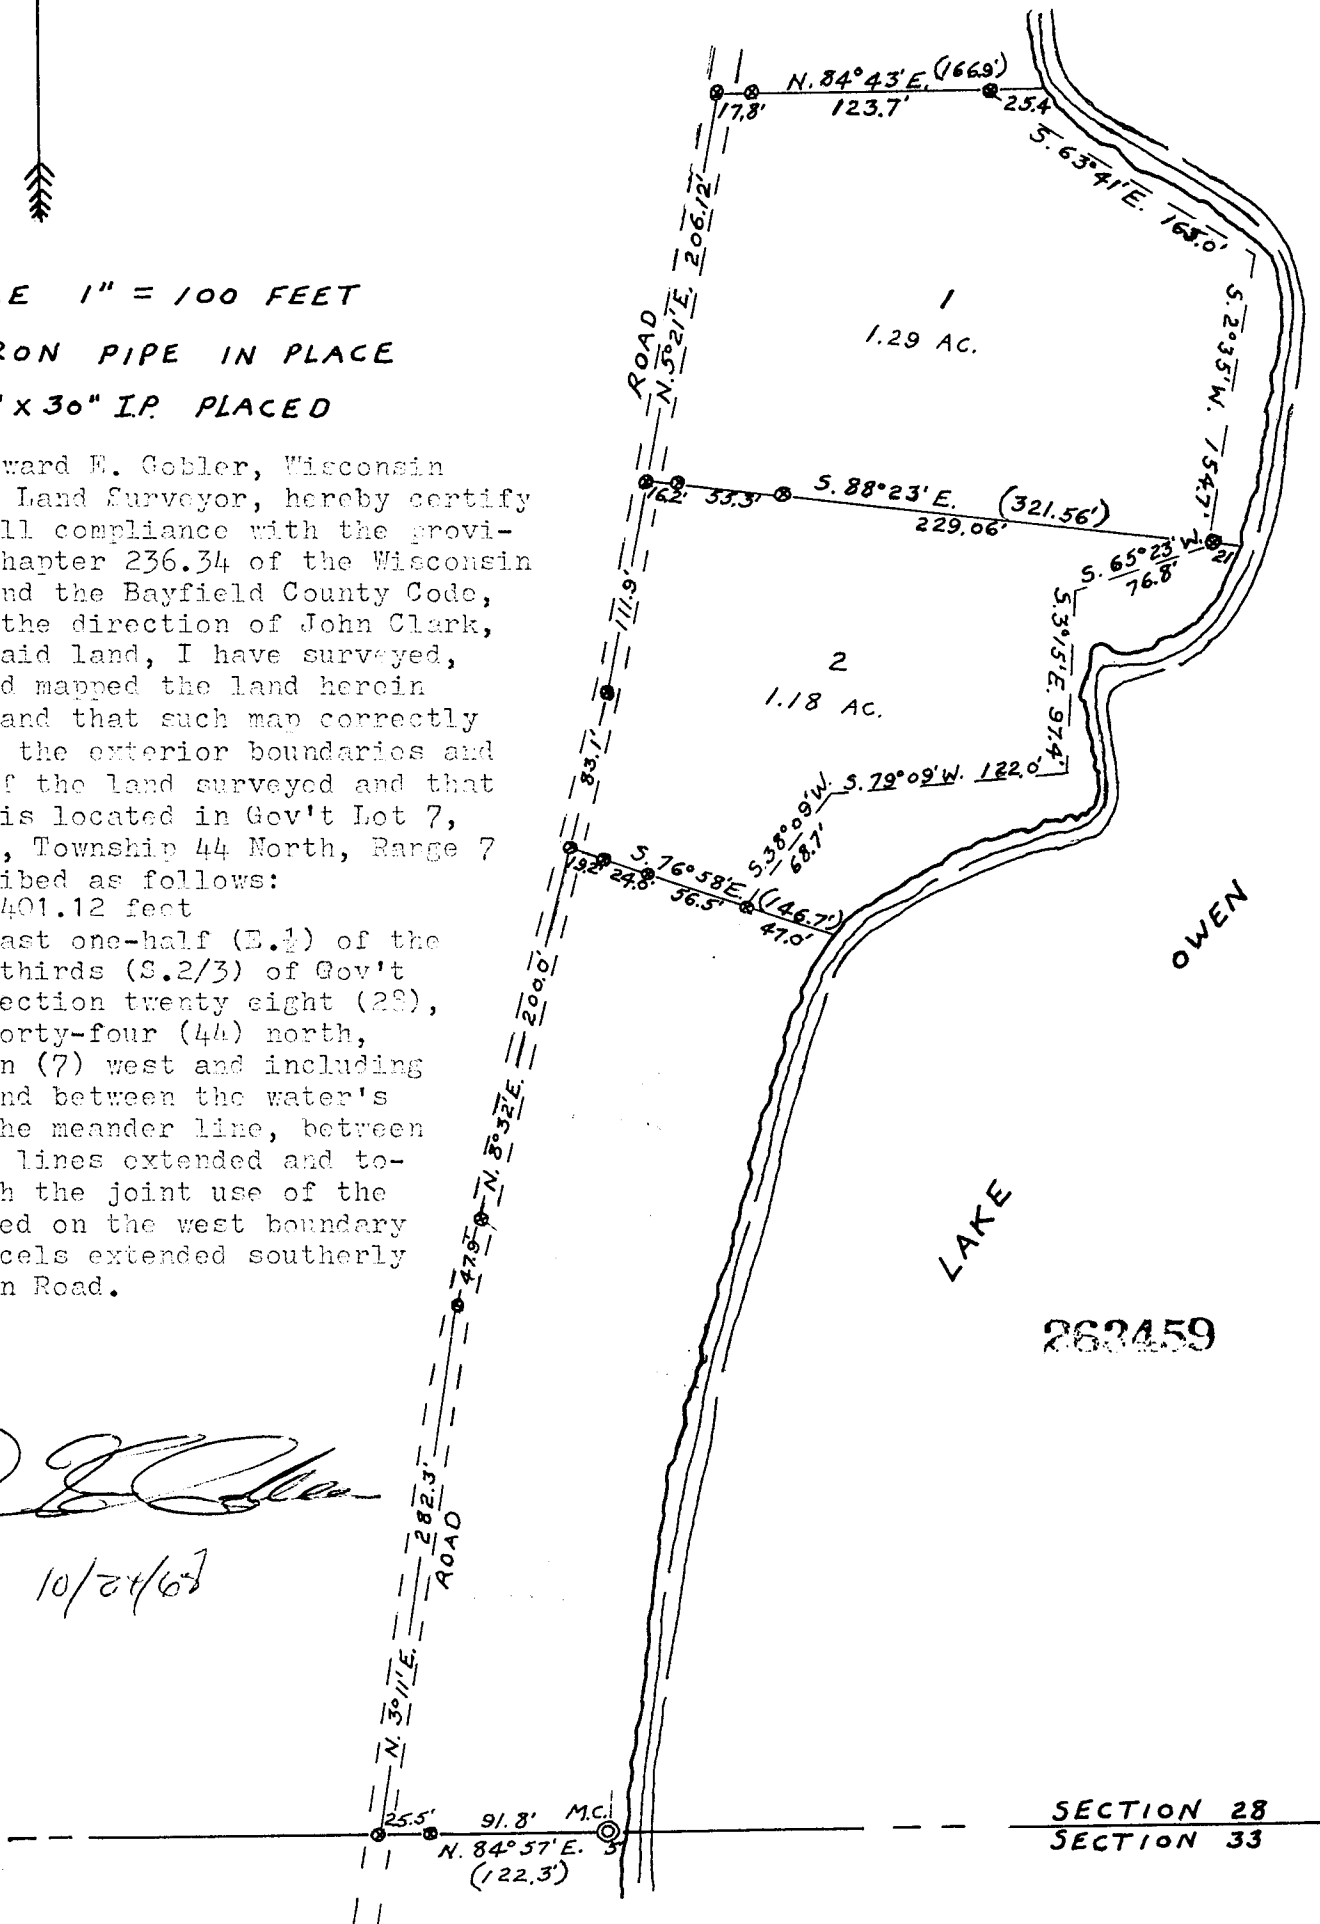 E 1" = 100 FEET
RON PIPE IN PLACE
" X 30" I.P. PLACED
ward E. Gobler, Wisconsin
Land Surveyor, hereby certify
ll compliance with the provi-
hapter 236.34 of the Wisconsin
nd the Bayfield County Code,
the direction of John Clark,
aid land, I have surveyed,
d mapped the land herein
and that such map correctly
the exterior boundaries and
f the land surveyed and that
is located in Gov't Lot 7,
, Township 44 North, Range 7
ibed as follows:
401.12 feet
ast one-half (E.½) of the
thirds (S.2/3) of Gov't
ection twenty eight (28),
orty-four (44) north,
n (7) west and including
nd between the water's
he meander line, between
lines extended and to-
h the joint use of the
ed on the west boundary
cels extended southerly
n Road.
N. 84°43' E. (166.9')
17.8' 123.7' 25.4
S. 63°41' E. 165.0'
S. 2°35' W. 154.7'
N. 5°21' E. 206.12'
ROAD
1
1.29 AC.
S. 88°23' E. (321.56')
16.2' 55.3' 229.06' 21
S. 65°23' W.
76.8'
S. 3°15' E. 97.4'
111.9'
2
1.18 AC.
83.1'
S. 79°09' W. 122.0'
S. 38°09' W.
68.7'
S. 76°58' E. (146.7')
19.2' 24.8' 56.5' 47.0'
N. 8°32' E. 200.0'
47.9'
OWEN
LAKE
263459
282.3'
ROAD
N. 3°11' E.
25.5' 91.8' M.C.
N. 84°57' E. 5'
(122.3')
SECTION 28
SECTION 33